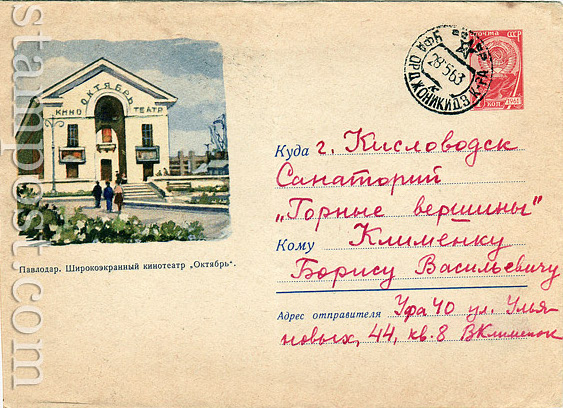 stampost.com
ОКТЯБРЬ
КИНО ТЕАТР
Павлодар. Широкоэкранный кинотеатр „Октябрь“.
УФА ОРДЖОНИКИДЗЕ
28563
ПОЧТА СССР
КОП. 1961
Куда г. Кисловодск
Санаторий
„Горные вершины"
Кому Клименку
Борису Васильевичу
Адрес отправителя Уфа 40 ул. Улья-
новых, 44, кв. 8 В Клименок